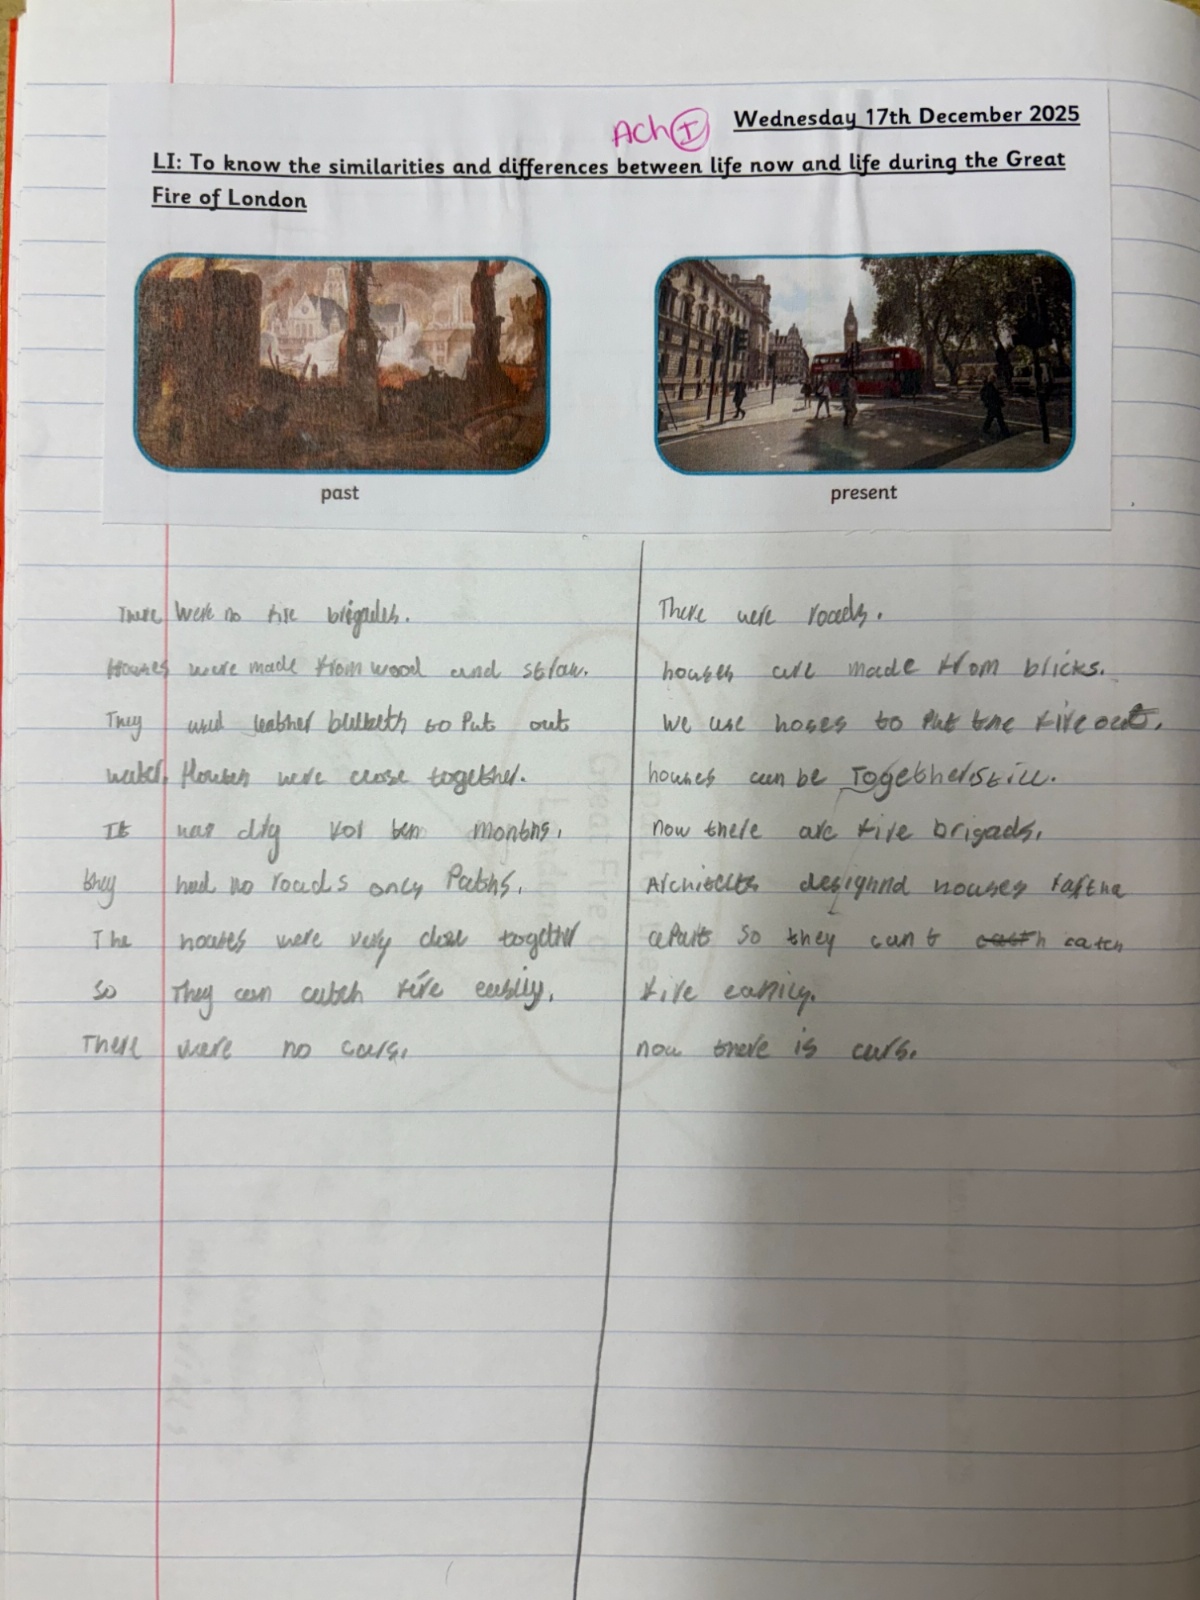 Ach I
Wednesday 17th December 2025
LI: To know the similarities and differences between life now and life during the Great
Fire of London
past
present
There were no fire brigades.
Houses were made from wood and straw.
They used leather to Put out
water. Houses were close together.
It was dry for ten months.
they had no roads only Paths.
The houses were very close together
so They can catch fire easily.
There were no cars.
There were roads.
houses are made from bricks.
We use hoses to Put the fire out.
houses can be Together still.
now there are fire brigads.
Architects houses
apart so they can t catch
fire easily.
now there is cars.